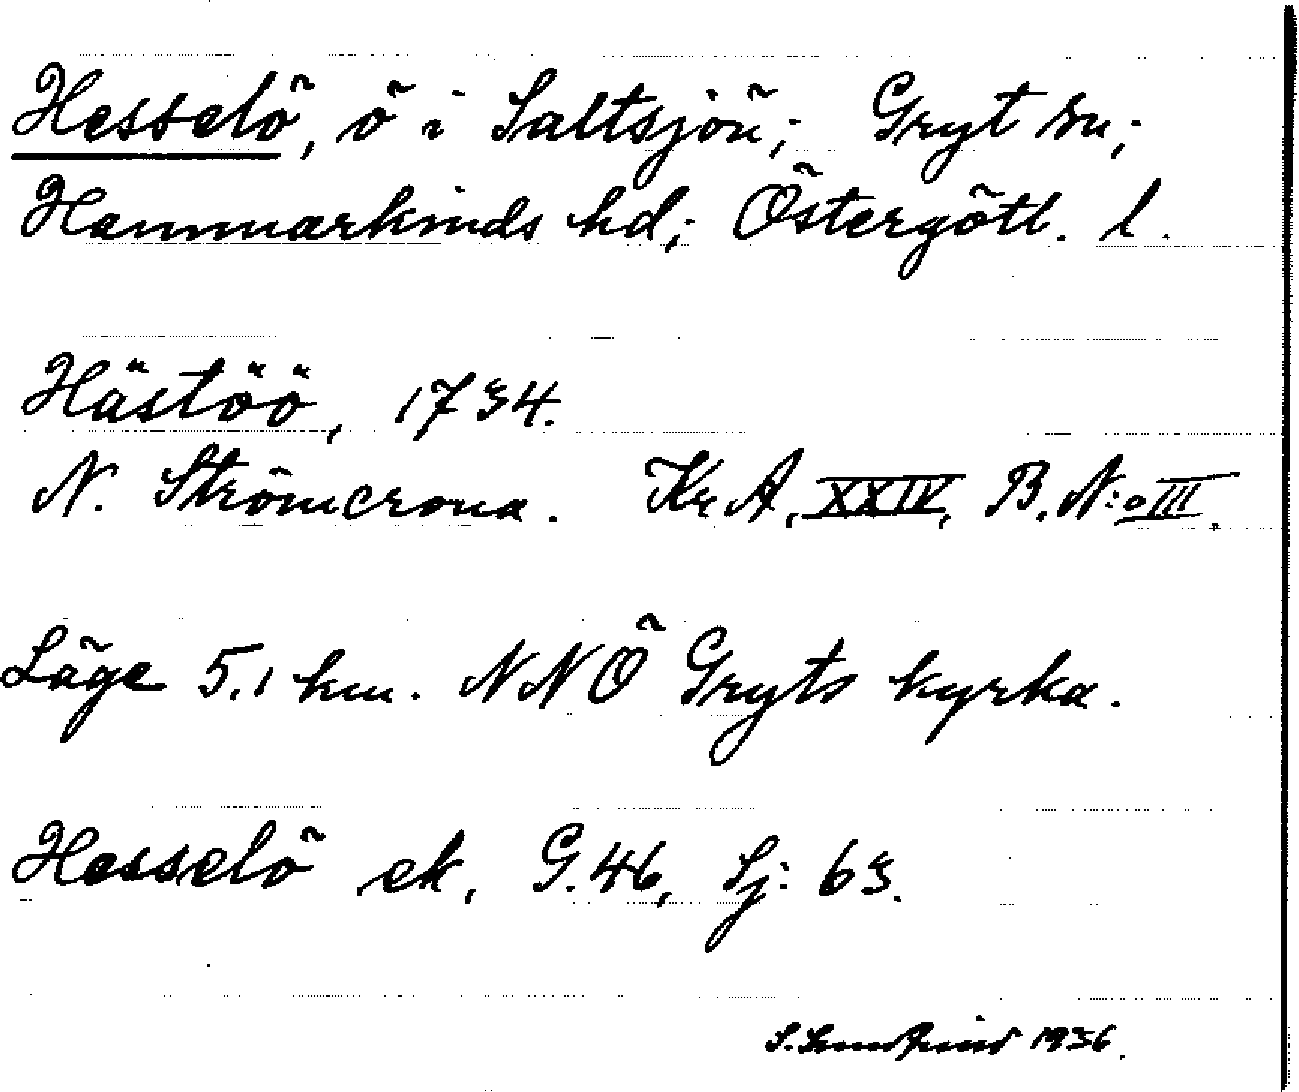 Hesselö, ö i Saltsjön; Gryt sn;
Hammarkinds hd; Östergötl. l.
Hästöö, 1734.
N. Strömcrona. Kr A, XXIV, B. N:o III.
Läge 5,1 km. NNÖ Gryts kyrka.
Hesselö ek, G. 46, Sj: 63.
S. 1936.